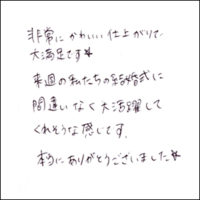 非常にかわいい仕上がりで
大満足です★
来週の私たちの結婚式に
間違いなく大活躍して
くれそうな感じです。
本当にありがとうございました★